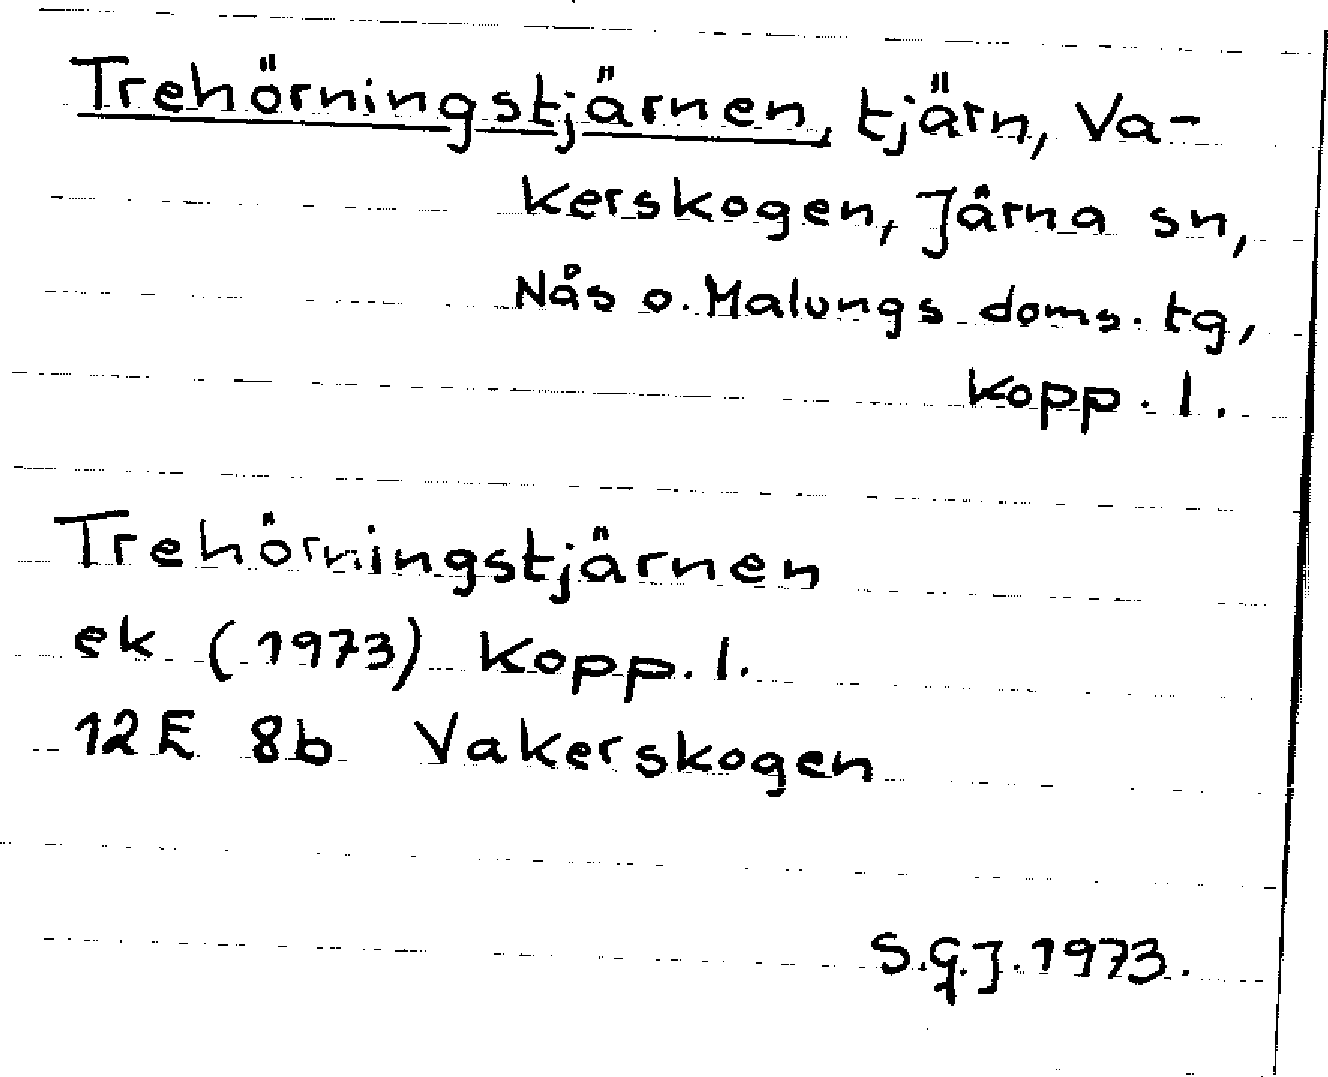 Trehörningstjärnen, tjärn, Va-
kerskogen, Järna sn,
Nås o. Malungs doms. tg,
Kopp. l.
Trehörningstjärnen
ek (1973) Kopp. l.
12E 8b Vakerskogen
S.G.J. 1973.